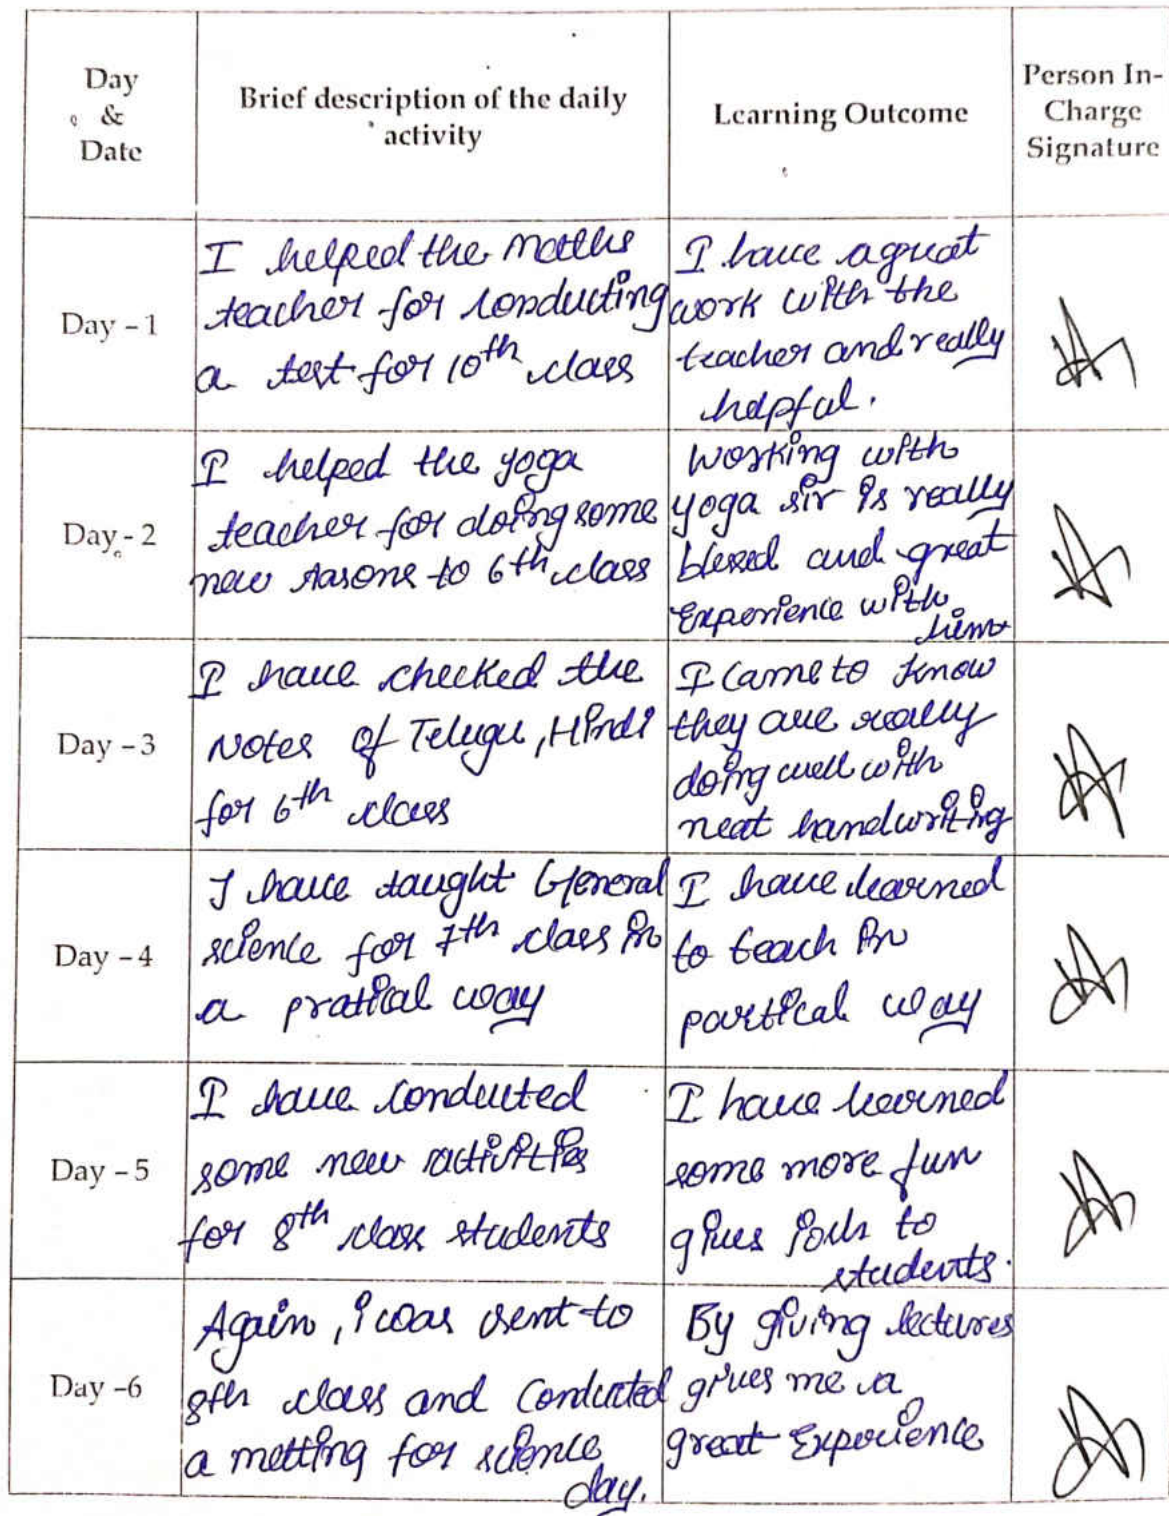 Day
&
Date
Brief description of the daily
activity
Learning Outcome
Person In-
Charge
Signature
Day - 1
I helped the maths
teacher for conducting
a test for 10th class
I have a great
work with the
teacher and really
helpful.
Day - 2
I helped the yoga
teacher for doing some
new Aasons to 6th class
Working with
yoga sir is really
blessed and great
Experience with
him
Day - 3
I have checked the
Notes of Telugu, Hindi
for 6th class
I came to know
they are really
doing well with
neat handwriting
Day - 4
I have taught General
science for 7th class in
a pratical way
I have learned
to teach in
partical way
Day - 5
I have conducted
some new activities
for 8th class students
I have learned
some more fun
gives to
students.
Day -6
Again, i was sent to
8th class and conducted
a metting for science
day.
By giving lectures
gives me a
great Experience